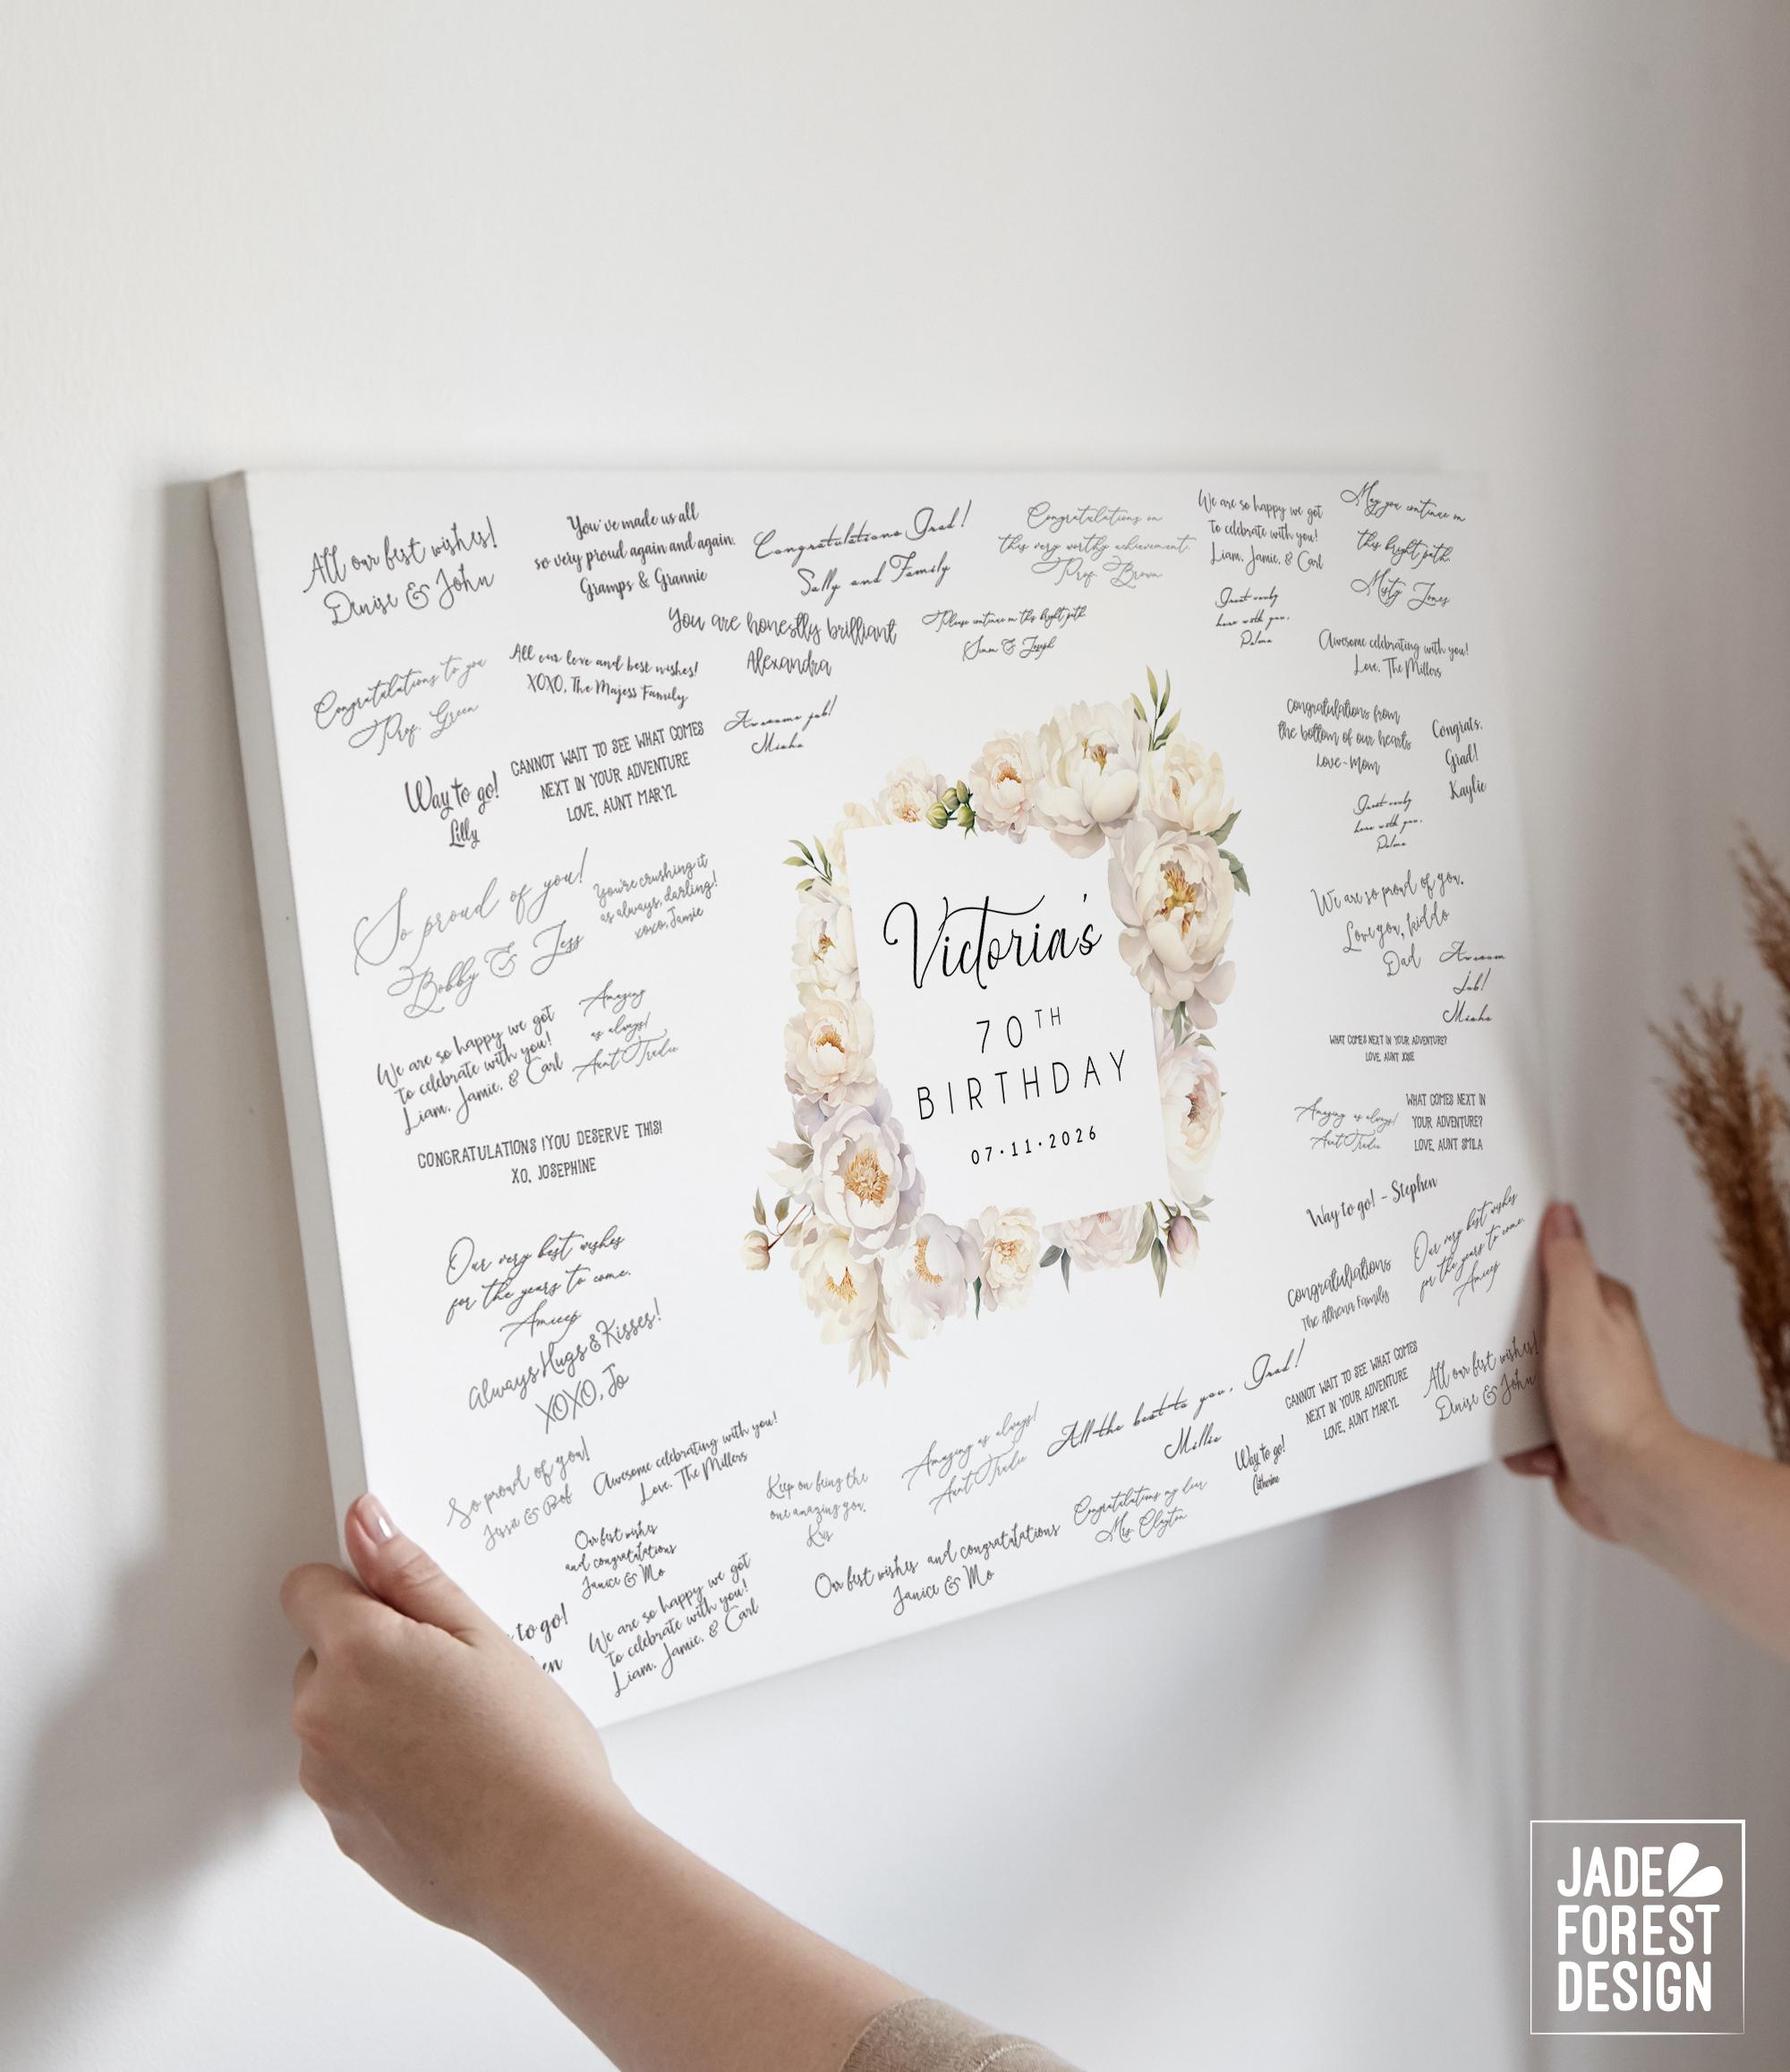 All our best wishes!
Denise & John
You've made us all
so very proud again and again.
Gramps & Grannie
Congratulations Grad!
Sally and Family
Congratulations on
this very worthy achievement.
Prof. Brown
We are so happy we got
to celebrate with you!
Liam, Jamie, & Carl
May you continue on
this bright path.
Misty Jones
You are honestly brilliant
Alexandra
Please continue on this bright path
& Joseph
here with you.
Awesome celebrating with you!
Love, The Millers
Congratulations to you
Prof. Green
All our love and best wishes!
XOXO, The Majess Family
CANNOT WAIT TO SEE WHAT COMES
NEXT IN YOUR ADVENTURE
LOVE, AUNT MARYL
Awesome job!
Misha
Congratulations from
the bottom of our hearts
Love-Mom
Congrats,
Grad!
Kaylie
Way to go!
Lilly
here with you.
So proud of you!
Bobby & Jess
You're crushing it
as always, darling!
xoxo, Jamie
Victoria's
70TH
BIRTHDAY
07·11·2026
We are so proud of you.
Love you, kiddo
Dad
Awesom
Job!
Misha
We are so happy we got
to celebrate with you!
Liam, Jamie, & Carl
Amazing
as always!
Aunt Trudie
WHAT COMES NEXT IN YOUR ADVENTURE?
LOVE, AUNT JOSIE
Amazing as always!
Aunt Trudie
WHAT COMES NEXT IN
YOUR ADVENTURE?
LOVE, AUNT SMILA
CONGRATULATIONS !YOU DESERVE THIS!
XO, JOSEPHINE
Way to go! - Stephen
Our very best wishes
for the years to come.
Our very best wishes
for the years to come.
Congratulations
The Athena Family
Always Hugs & Kisses!
XOXO, Jo
All the best to you, Grad!
Millie
CANNOT WAIT TO SEE WHAT COMES
NEXT IN YOUR ADVENTURE
LOVE, AUNT MARYL
All our best wishes!
Denise & John
So proud of you!
Jessa & Bob
Awesome celebrating with you!
Love, The Millers
Keep on being the
one amazing you.
Kris
Amazing as always!
Aunt Trudie
Way to go!
Catherine
Congratulations my dear
Mrs. Clayton
Our best wishes
and congratulations
Janice & Mo
Our best wishes and congratulations
Janice & Mo
to go!
en
We are so happy we got
to celebrate with you!
Liam, Jamie, & Carl
JADE
FOREST
DESIGN